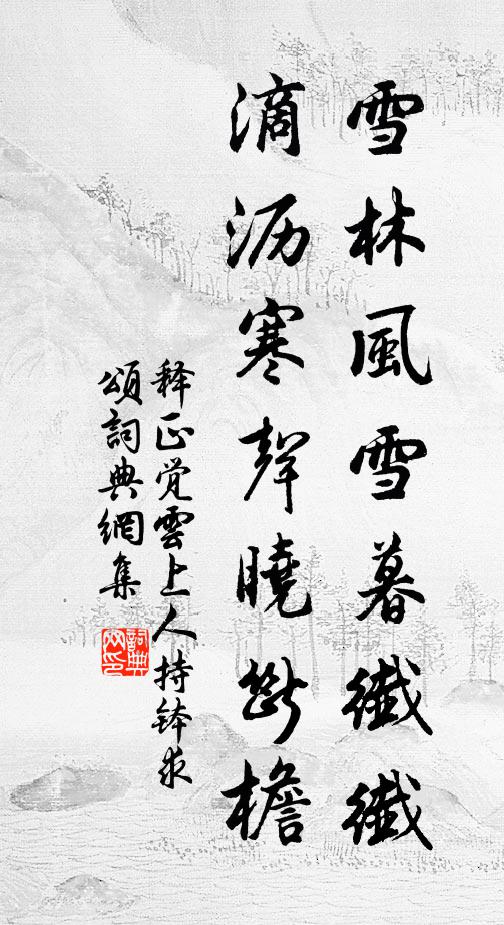 雪林風雪暮纖纖
滴沥寒聲曉斷檐
释正觉雲上人持钵求
頌詞典網集
詞典
网印